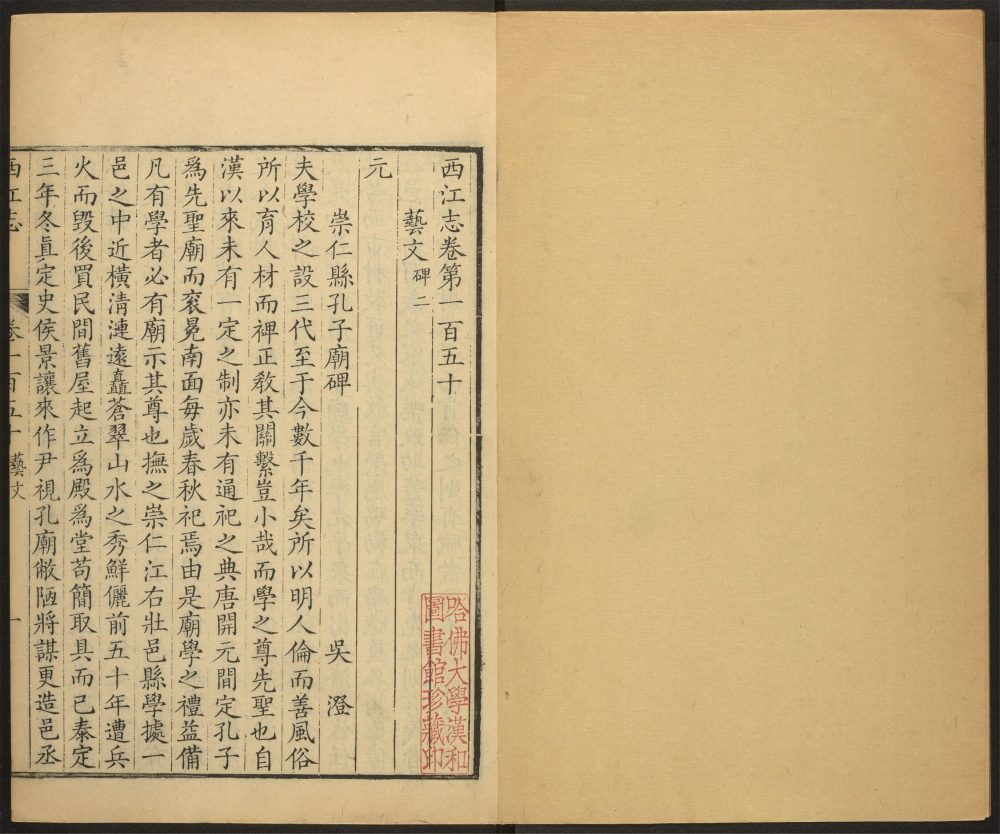 西江志卷第一百五十
藝文 碑二
元
崇仁縣孔子廟碑 吳澄
夫學校之設三代至于今數千年矣所以明人倫而善風俗
所以育人材而裨正教其關繫豈小哉而學之尊先聖也自
漢以來未有一定之制亦未有通祀之典唐開元間定孔子
爲先聖廟而袞冕南面每歲春秋祀焉由是廟學之禮益備
凡有學者必有廟示其尊也撫之崇仁江右壯邑縣學據一
邑之中近橫清漣遠矗蒼翠山水之秀鮮儷前五十年遭兵
火而毀後買民間舊屋起立爲殿爲堂苟簡取具而已泰定
三年冬眞定史侯景讓來作尹視孔廟敝陋將謀更造邑丞
西江志 卷一百五十 藝文 一
哈佛大學漢和
圖書館珍藏印